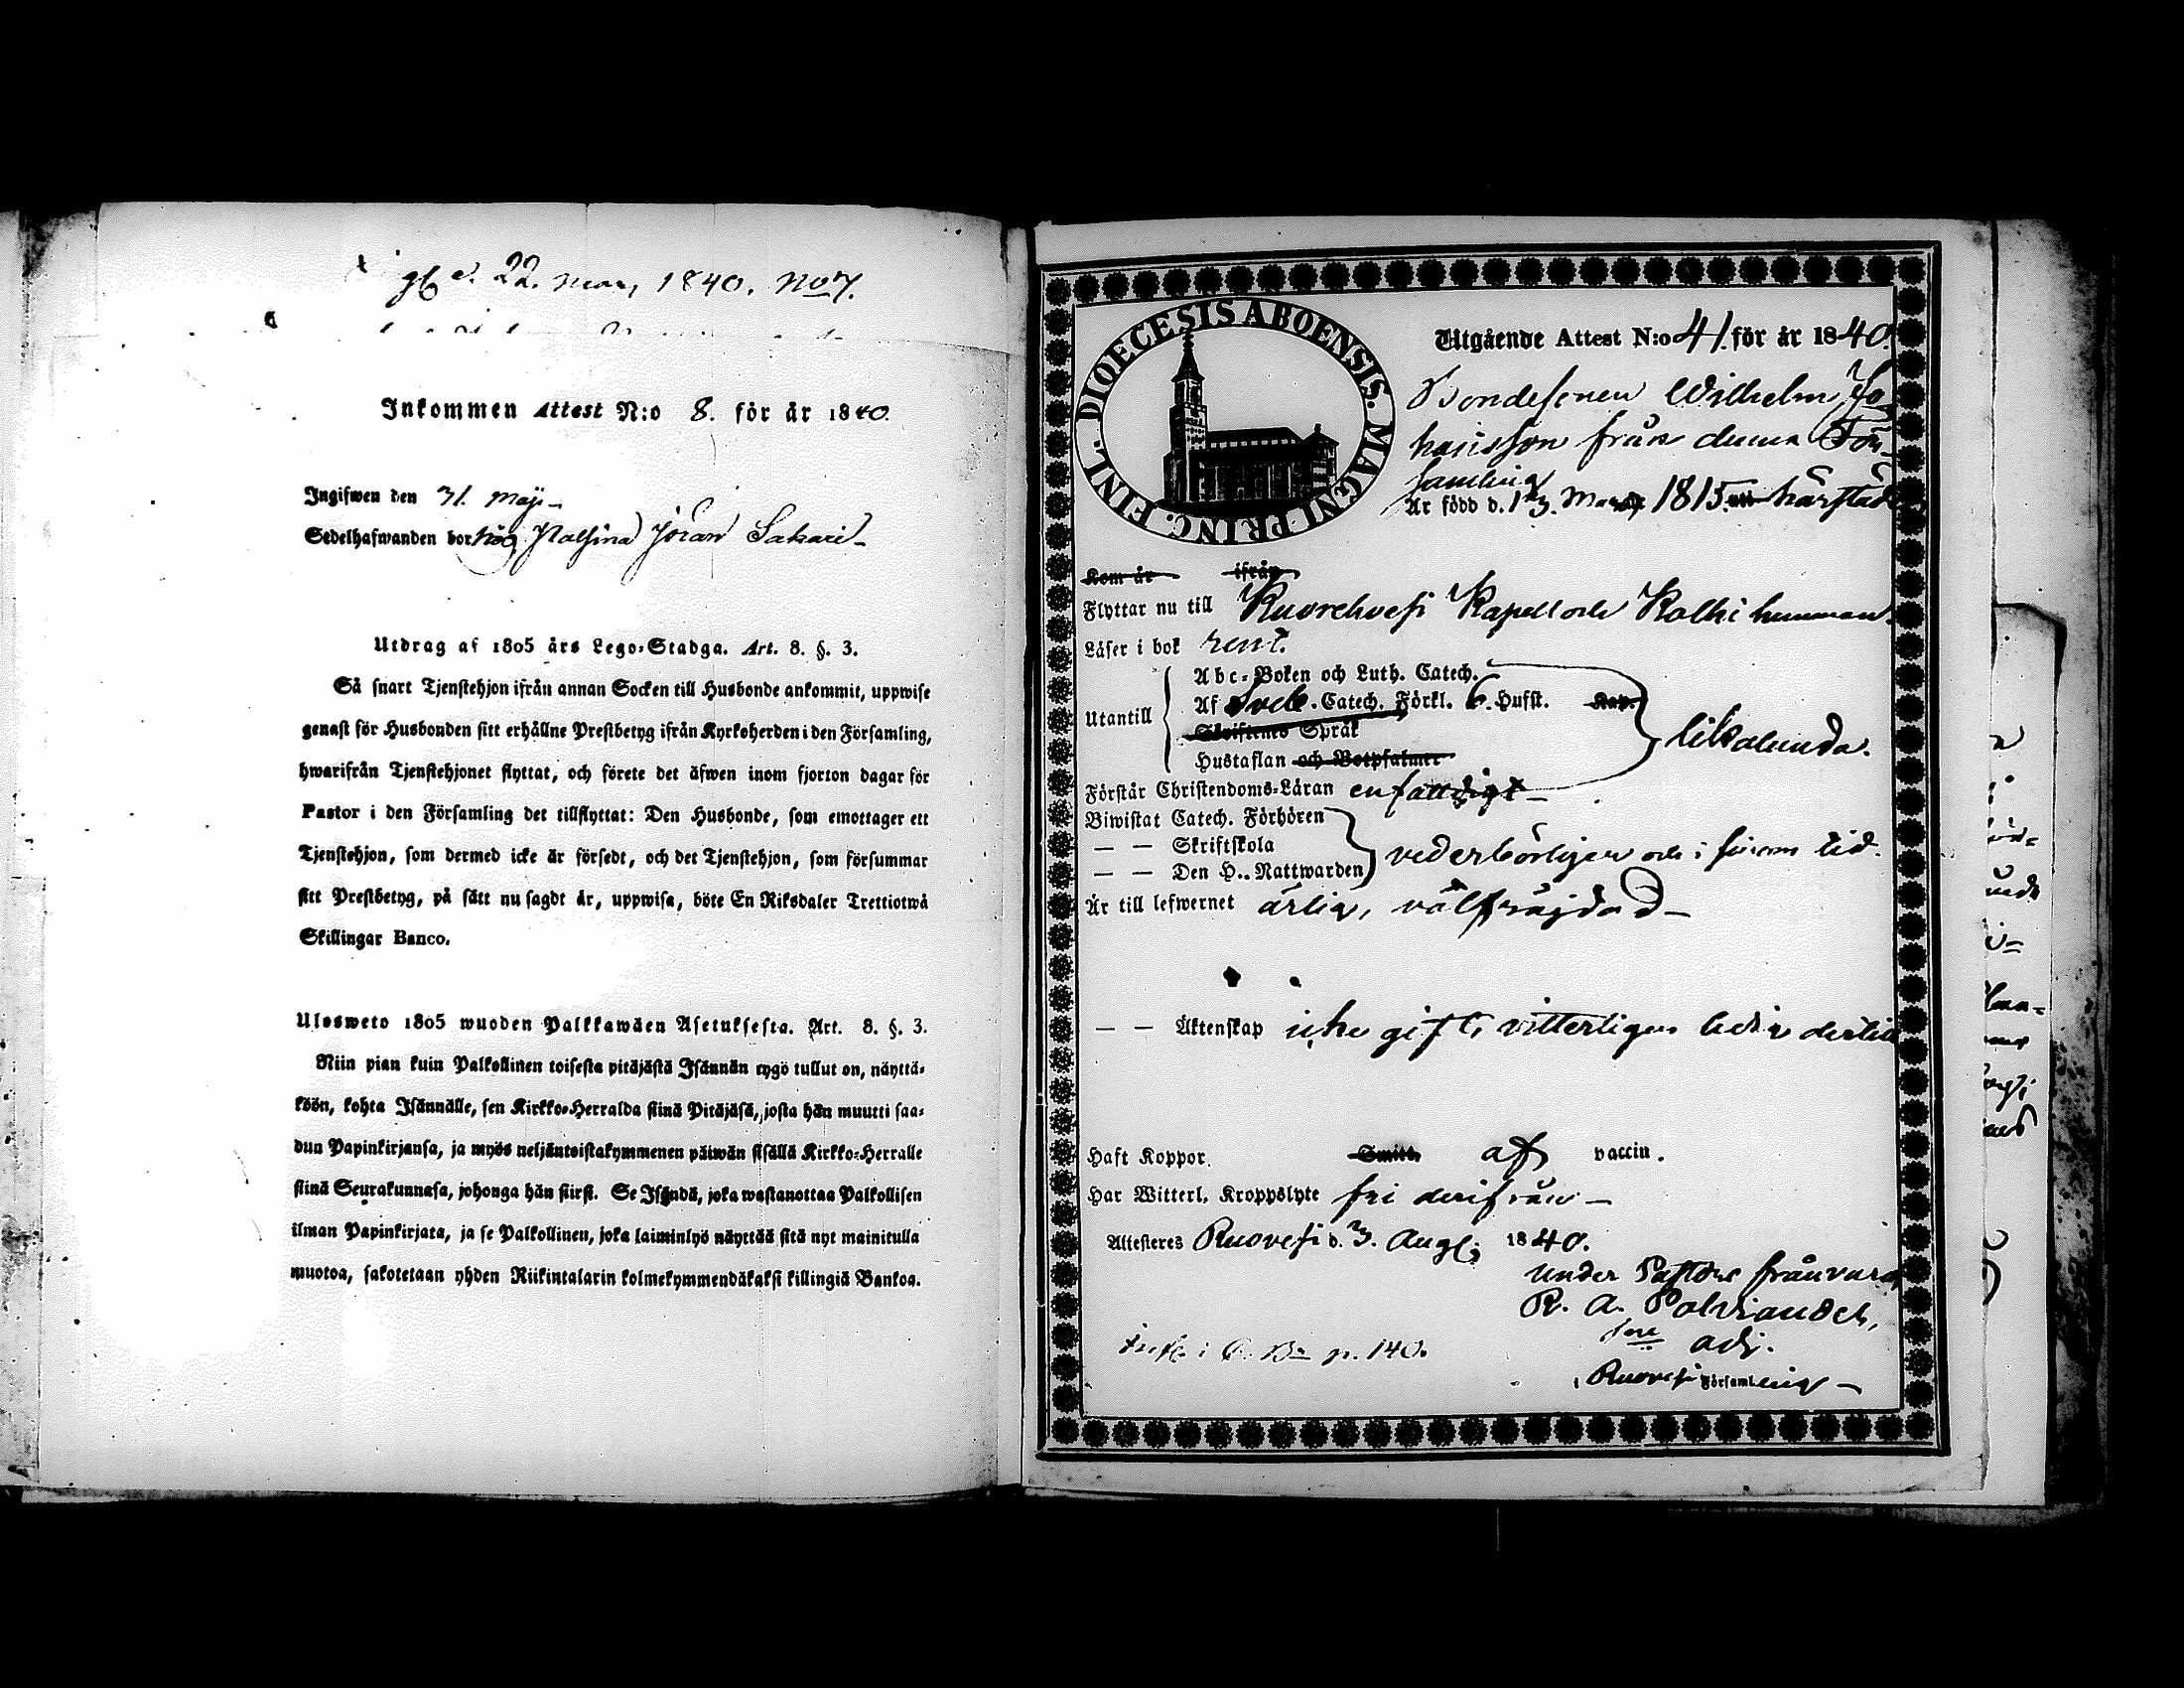 22. 1840. No 7.
Inkommen Attest N:o 8. för år 1840.
Ingifwen den 31. Maji
Sedelhafwanden bor hos Jöran Sakari
Utdrag af 1805 års Lego-Stadga. Art. 8. §. 3.
Så snart Tjenstehjon ifrån annan Socken till Husbonde ankommit, uppwise
genast för Husbonden sitt erhållne Prestbetyg ifrån Kyrkoherden i den Församling,
hwarifrån Tjenstehjonet flyttat, och förete det äfwen inom fjorton dagar för
Pastor i den Församling det tillflyttat: Den Husbonde, som emottager ett
Tjenstehjon, som dermed icke är försedt, och det Tjenstehjon, som försummar
sitt Prestbetyg, på sätt nu sagdt är, uppwisa, böte En Riksdaler Trettiotwå
Skillingar Banco.
Ulosweto 1805 wuoden Palkkawäen Asetuksesta. Art. 8. §. 3.
Niin pian kuin Palkollinen toisesta pitäjästä Isännän tygö tullut on, näyttä-
köön, kohta Isännälle, sen Kirkko-Herralda siinä Pitäjäsä, josta hän muutti saa-
dun Papinkirjansa, ja myös neljäntoistakymmenen päiwän sisällä Kirkko-Herralle
siinä Seurakunnasa, johonga hän siirsi. Se Isändä, joka wastanottaa Palkollisen
ilman Papinkirjata, ja se Palkollinen, joka laiminlyö näyttää sitä nyt mainitulla
muotoa, sakotetaan yhden Riikintalarin kolmekymmendäkaksi killingiä Bankoa.
DIOECESIS ABOENSIS. MAGNI PRINC. FINL.
Utgående Attest N:o 41. för år 1840.
Bondesonen Wilhelm Jo-
hansson från denna För-
samling
Är född d. 13. 1815. härstäd
Kom år ifrån
Flyttar nu till Kuorehvesi Kapell och Kolhi hemman.
Läser i bok rent.
Abc-Boken och Luth. Catech.
Utantill Af Sveb. Catech. Förkl. 6. Hufst. Kap.
Skriftenes Språk
Hustaflan och Botpsalmer
likalunda.
Förstår Christendoms-Läran enfaldigt
Biwistat Catech. Förhören
— — Skriftskola
— — Den H. Nattwarden
vederbörligen och i sinom tid.
Är till lefwernet ärlig, välfräjdad
— — Äktenskap icke gift, vitterligen ledig dertill
Haft Koppor. Smitt. af vaccin.
Har Witterl. Kroppslyte fri derifrån
Attesteres Ruovesi d. 3. Aug. 1840.
Under Pastors frånvaro
R. A. Polviander,
adj.
i Ruovesi Församling
p. 140.